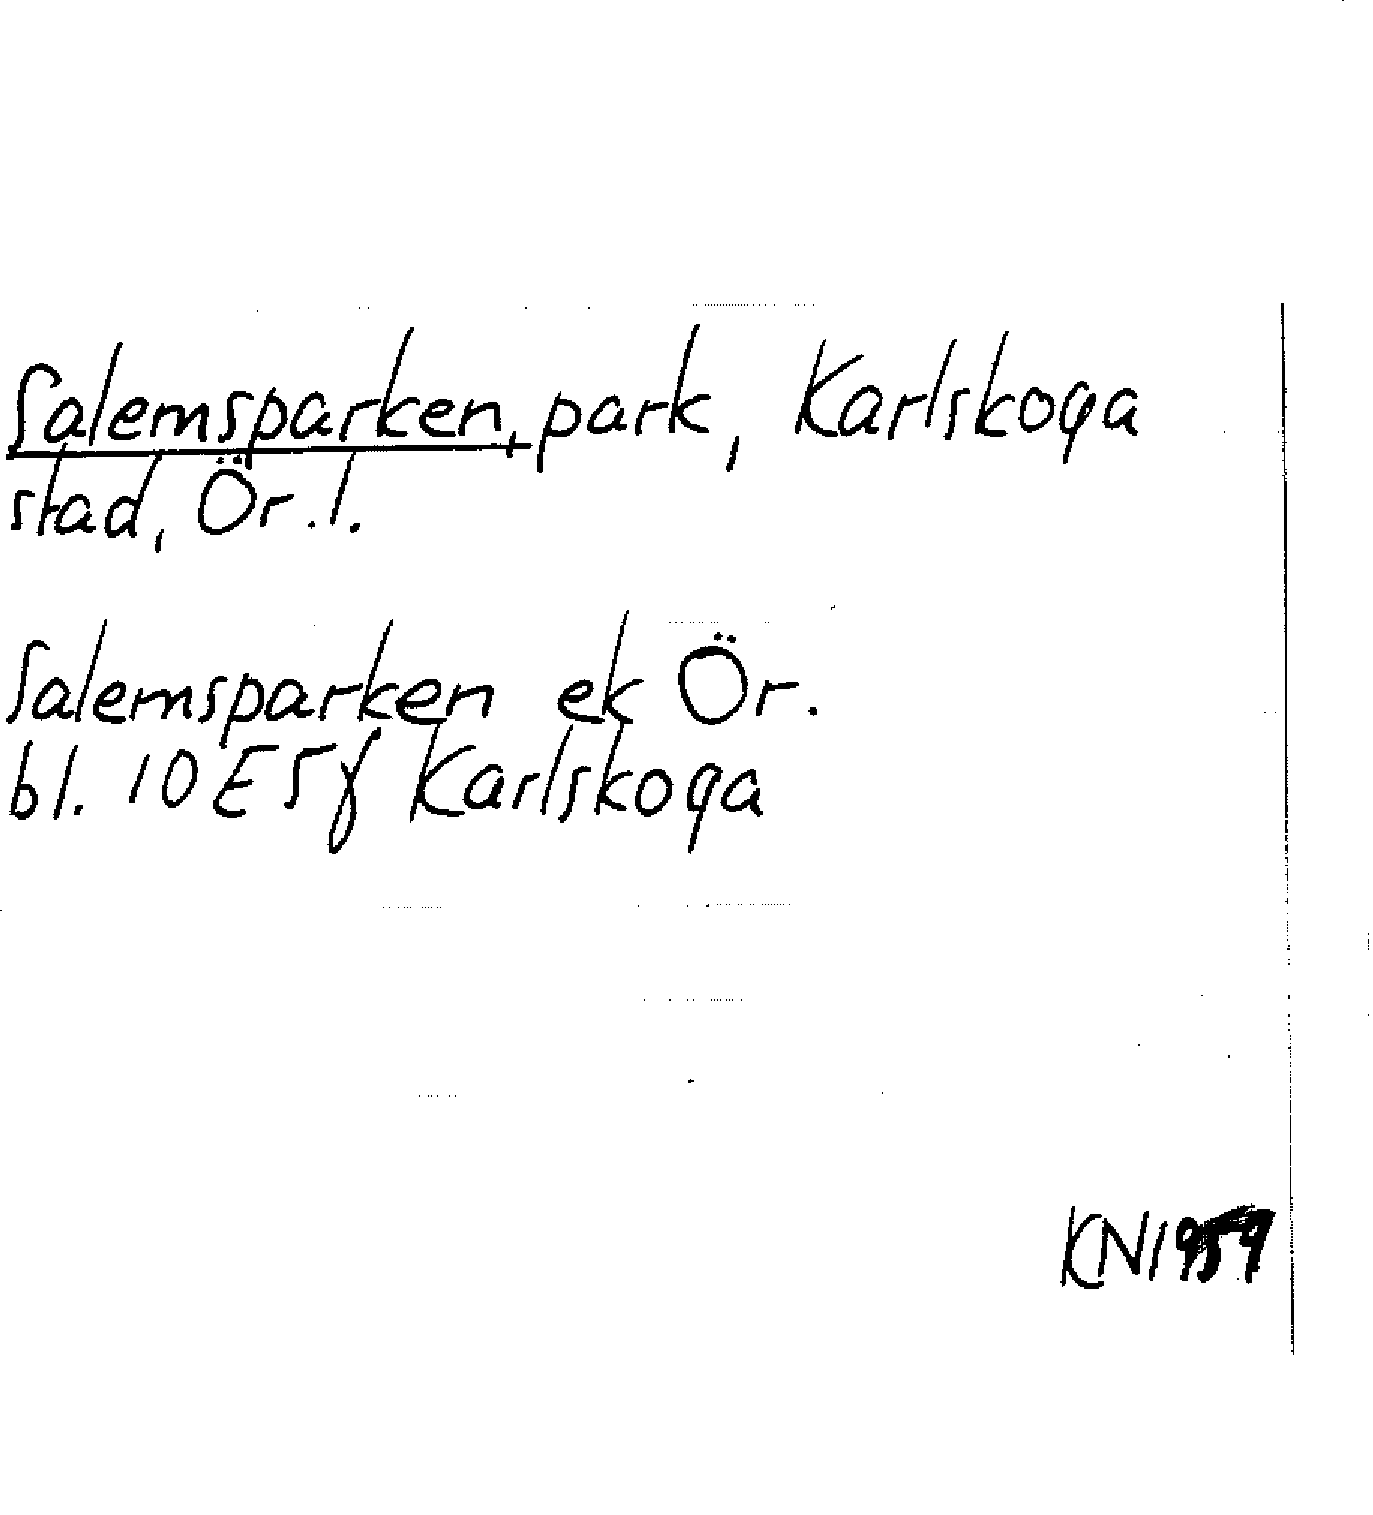 Salemsparken, park, Karlskoga
stad, Ör. l.
Salemsparken ek Ör.
bl. 10 E 5 f Karlskoga
KN 1959